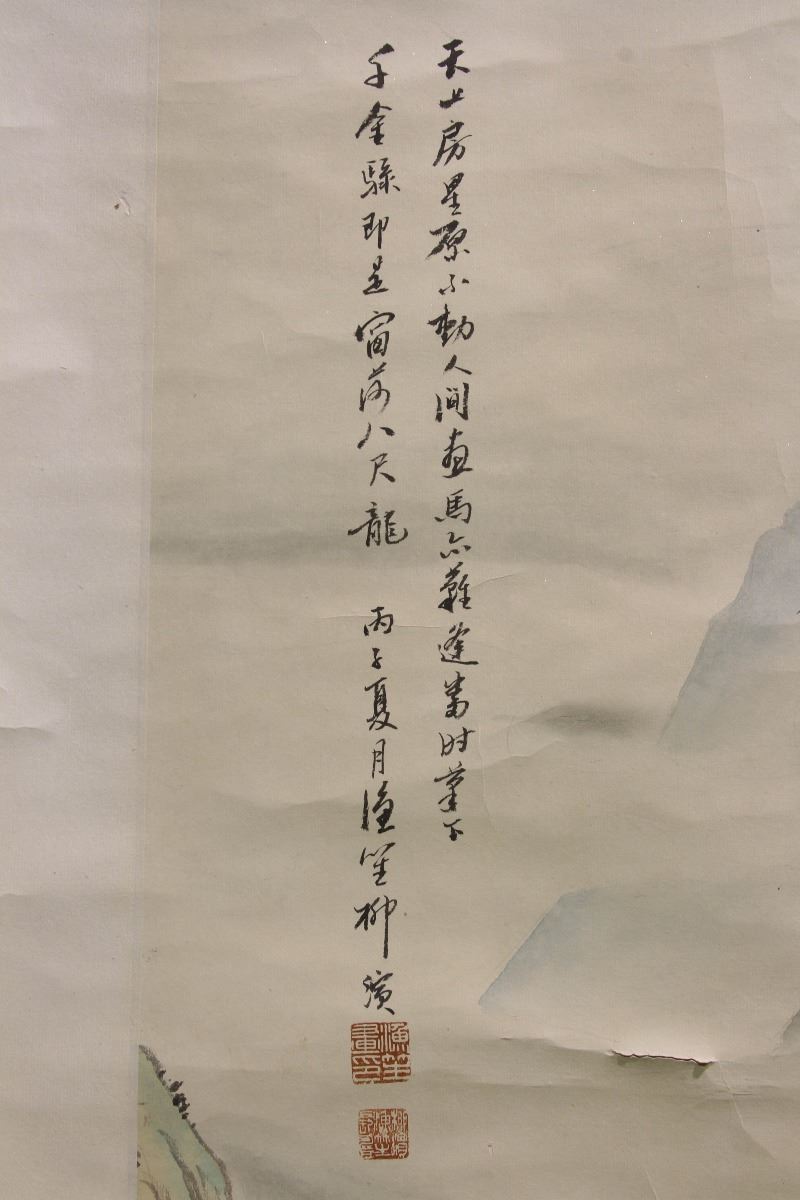 天上房星原不動人间畫馬亦難逢當时筆下
千金騄即是窗前八尺龍 丙子夏月漁笙柳濱
漁笙畫印